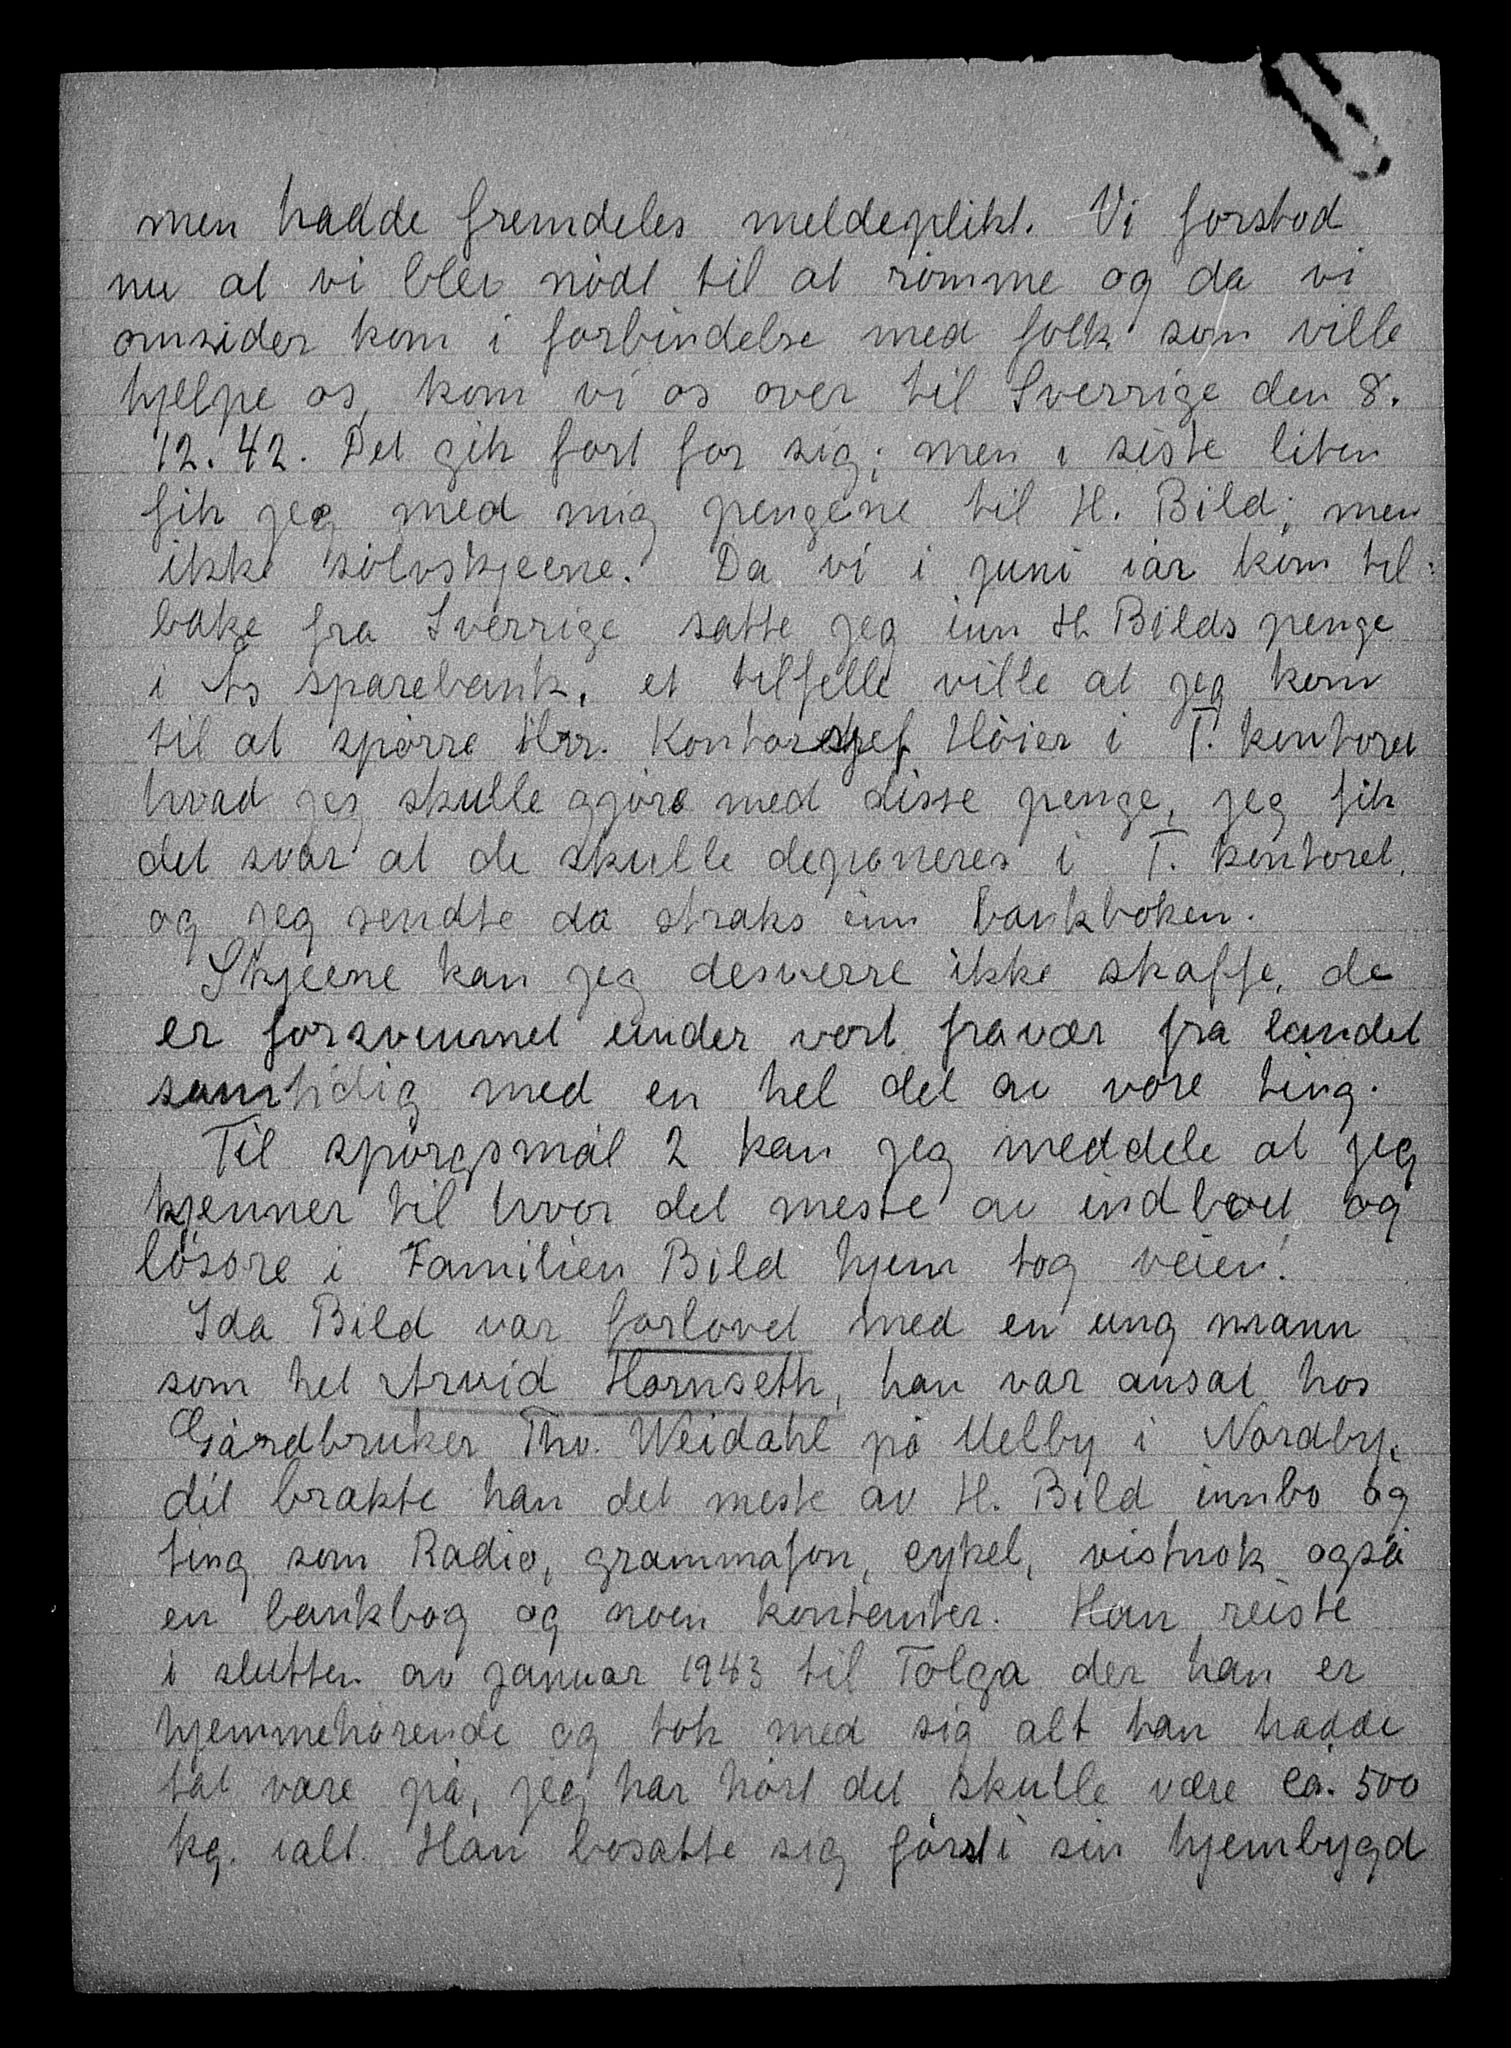 men hadde fremdeles meldeplikt. Vi forstod
nu at vi blev nødt til at rømme og da vi
omsider kom i forbindelse med folk som ville
hjelpe os, kom vi os over til Sverrige den 8.
12. 42. Det gik fort for sig; men i siste liten
fik jeg med mig pengene til H. Bild; men
ikke sølvskjeene. Da vi i juni iår kom til-
bake fra Sverrige satte jeg inn H. Bilds penge
i Ås sparebank, et tilfelle ville at jeg kom
til at spørre Hrr. Kontorsjef Höier i T. kontoret
hvad jeg skulle gjøre med disse penge, jeg fik
det svar at de skulle deponeres i T. kontoret,
og jeg sendte da straks inn bankboken.
Skjeene kan jeg desverre ikke skaffe, de
er forsvunnet under vort fravær fra landet
samtidig med en hel del av vore ting.
Til spørgsmål 2 kan jeg meddele at jeg
kjenner til hvor det meste av indboet og
løsøre i Familien Bild hjem tog veien.
Ida Bild var forlovet med en ung mann
som het Arvid Hornseth, han var ansat hos
Gårdbruker Thv. Weidahl på Melby i Nordby,
dit brakte han det meste av H. Bild innbo og
ting som Radio, grammafon, cykel, vistnok også
en bankbog og noen kontanter. Han reiste
i slutten av januar 1943 til Tolga der han er
hjemmehørende og tok med sig alt han hadde
tat vare på, jeg har hørt det skulle være ca. 500
kg. ialt. Han bosatte sig først i sin hjembygd